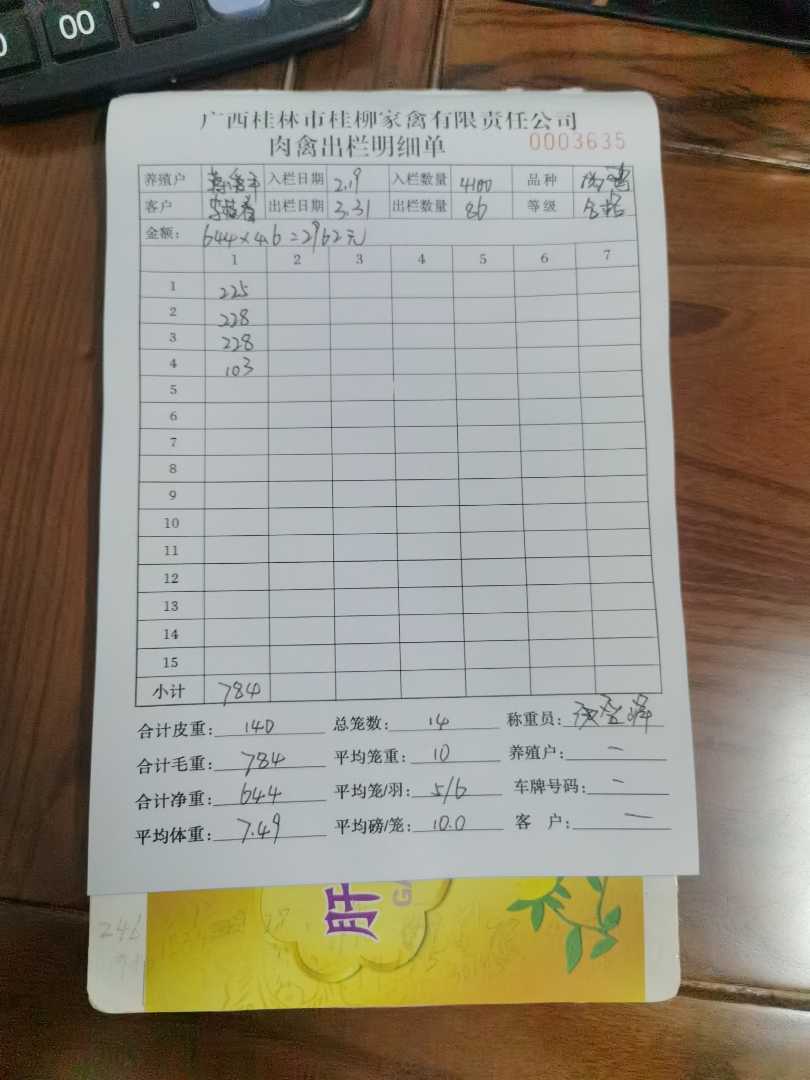 00
广西桂林市桂柳家禽有限责任公司
肉禽出栏明细单 0003635
养殖户 入栏日期 2.19 入栏数量 4100 品种
客户 出栏日期 3.31 出栏数量 86 等级 合格
金额: 644×4.6=2962元
1 2 3 4 5 6 7
1 225
2 228
3 228
4 103
5
6
7
8
9
10
11
12
13
14
15
小计 784
合计皮重: 140 总笼数: 14 称重员:
合计毛重: 784 平均笼重: 10 养殖户: 一
合计净重: 644 平均笼/羽: 5/6 车牌号码: 一
平均体重: 7.49 平均磅/笼: 10.0 客 户: 一
肝
GA
246